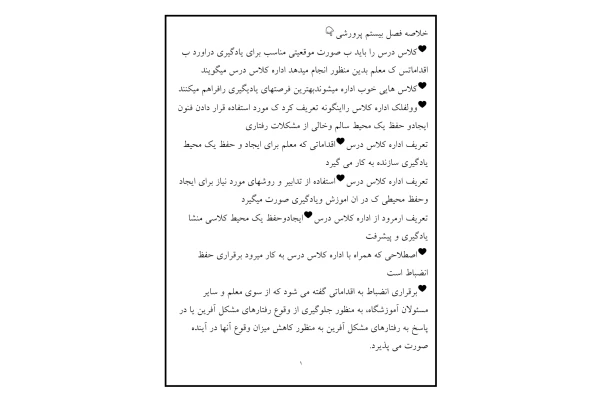 خلاصه فصل بیستم پرورشی
🖤کلاس درس را باید ب صورت موقعیتی مناسب برای یادگیری دراورد ب
اقداماتس ک معلم بدین منظور انجام میدهد اداره کلاس درس میگویند
🖤کلاس هایی خوب اداره میشوندبهترین فرصتهای یادیگیری رافراهم میکنند
🖤وولفلک اداره کلاس رااینگونه تعریف کرد ک مورد استفاده قرار دادن فنون
ایجادو حفظ یک محیط سالم وخالی از مشکلات رفتاری
تعریف اداره کلاس درس🖤اقداماتی که معلم برای ایجاد و حفظ یک محیط
یادگیری سازنده به کار می گیرد
تعریف اداره کلاس درس🖤استفاده از تدابیر و روشهای مورد نیاز برای ایجاد
وحفظ محیطی ک در ان اموزش ویادگیری صورت میگیرد
تعریف ارمرود از اداره کلاس درس🖤ایجادوحفظ یک محیط کلاسی منشا
یادگیری و پیشرفت
🖤اصطلاحی که همراه با اداره کلاس درس به کار میرود برقراری حفظ
انضباط است
🖤برقراری انضباط به اقداماتی گفته می شود که از سوی معلم و سایر
مسئولان آموزشگاه، به منظور جلوگیری از وقوع رفتارهای مشکل آفرین یا در
پاسخ به رفتارهای مشکل آفرین به منظور کاهش میزان وقوع آنها در آینده
صورت می پذیرد.
۱